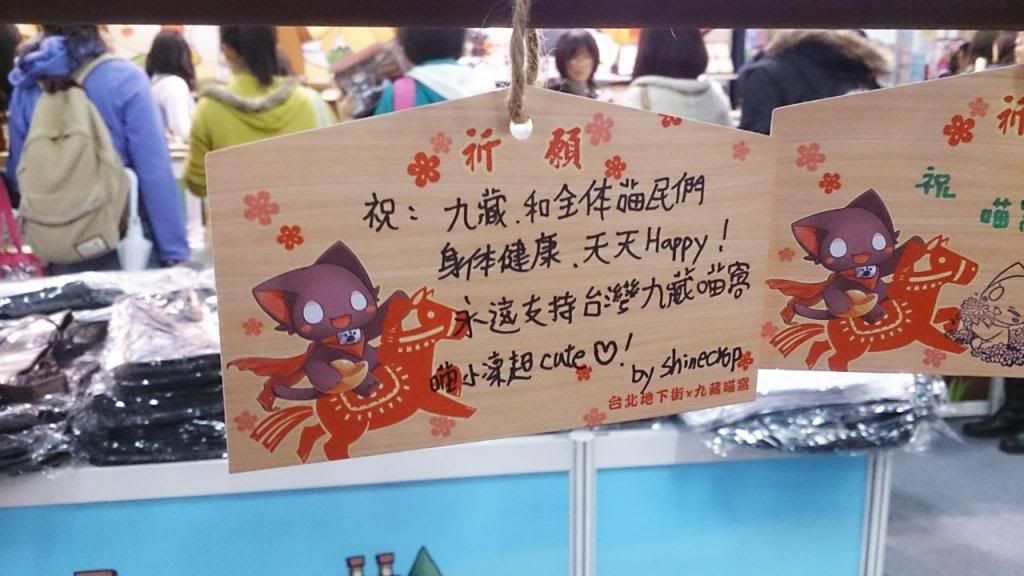 祈願
祝：九藏、和全体喵民們
身体健康、天天Happy！
永遠支持台灣九藏喵窩
喵小凜超cute♡！
by shinecrop
台北地下街×九藏喵窩
祈
祝
喵窩